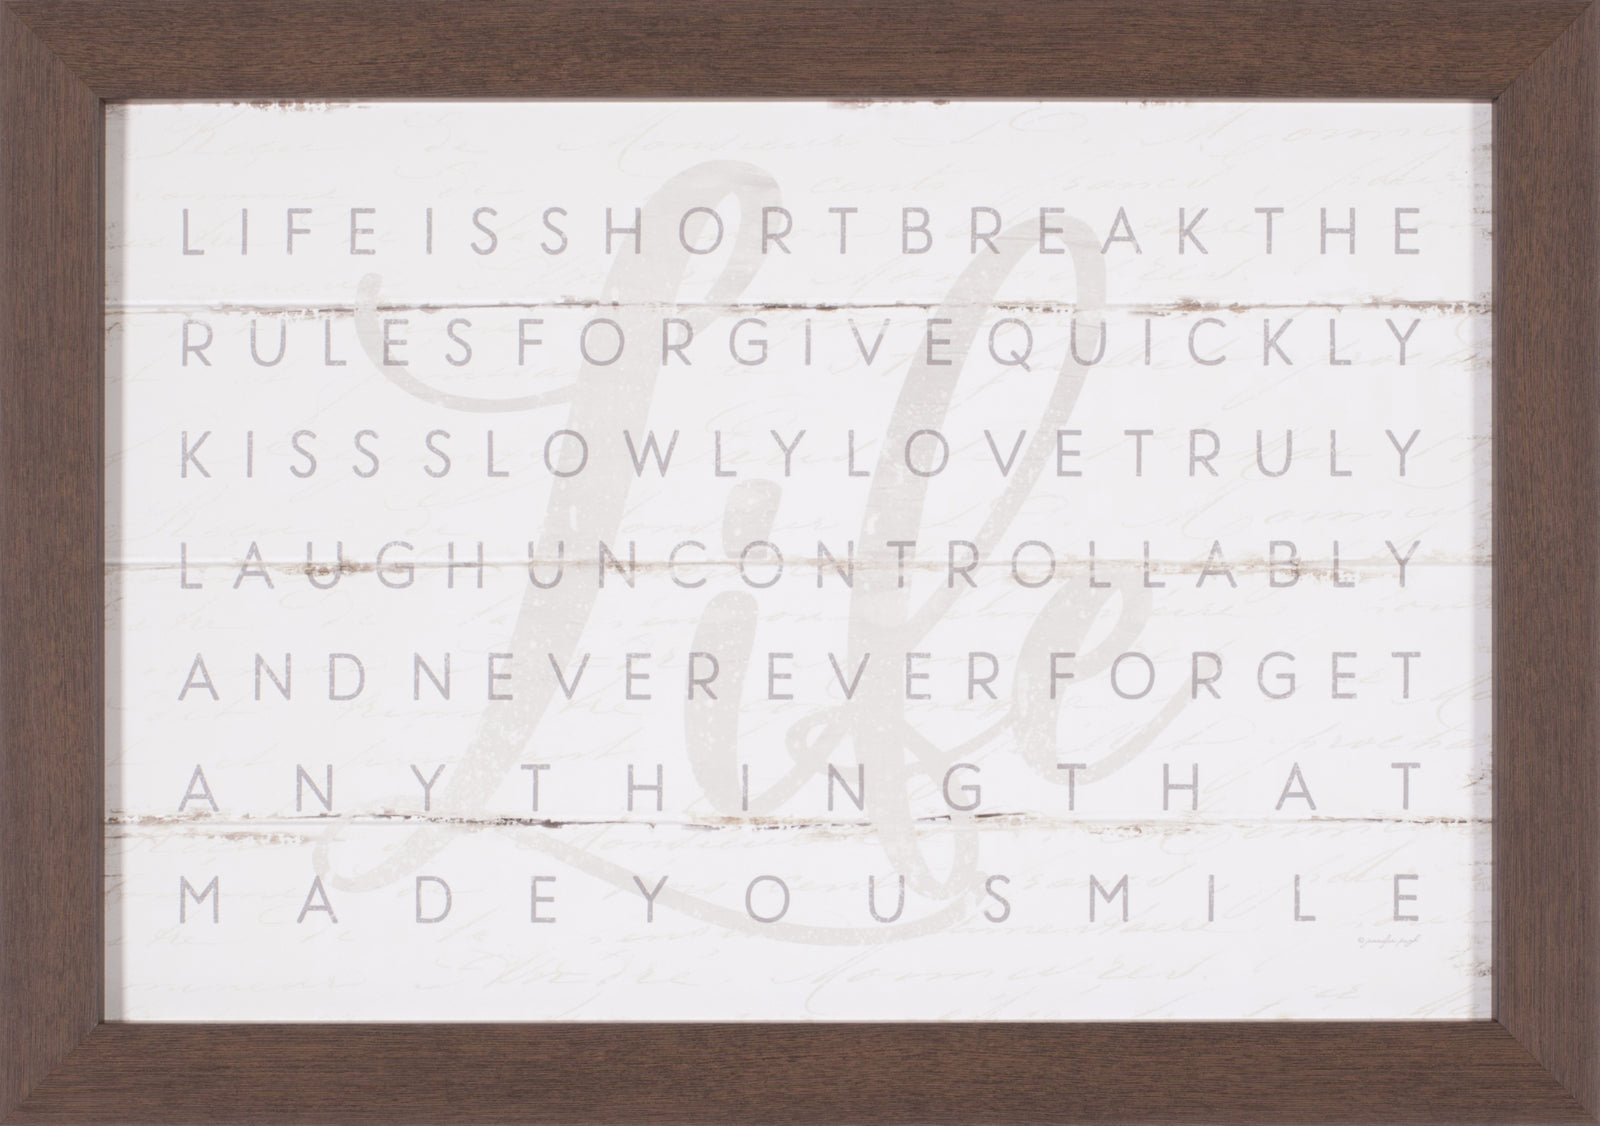 LIFE IS SHORT BREAK THE
RULES FORGIVE QUICKLY
KISS SLOWLY LOVE TRULY
LAUGH UNCONTROLLABLY
AND NEVER EVER FORGET
ANYTHING THAT
MADE YOU SMILE
Life
© jennifer pugh